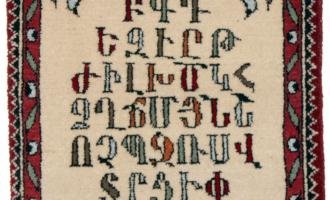 ԲԳԴ
ԵԶԷԸԹ
ԺԻԼԽԾԿՀ
ՁՂՃՄՅՆՇ
ՈՉՊՋՌՍՎ
ՏՐՑՒՓ